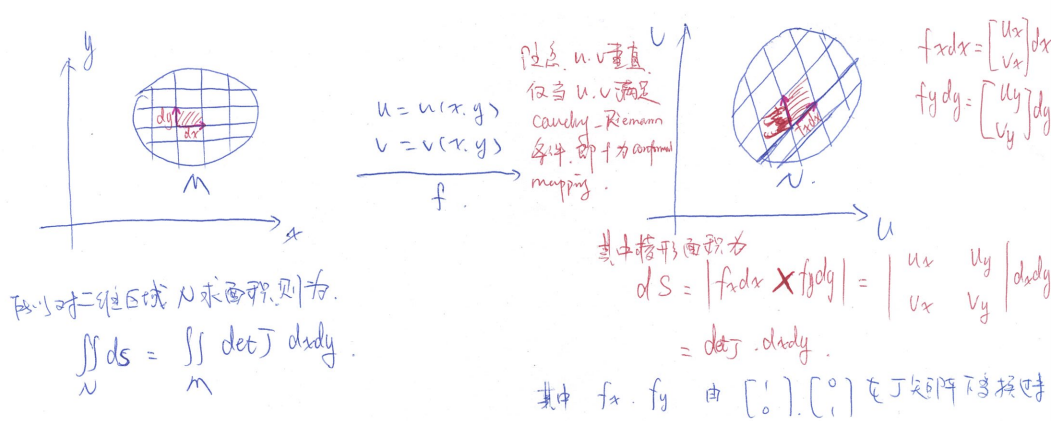 y
dy
dx
M
x
u = u(x.y)
v = v(x.y)
f.
u.v垂直
仅当 u.v满足
cauchy-Riemann
条件.即f为conformal
mapping.
U
fxdx
N.
U
fxdx = [ux vx] dx
fydy = [uy vy] dy
面积为
dS = |fxdx × fydy| = | ux uy
vx vy | dxdy
= detJ . dxdy.
所以对二维区域 N求面积.则为.
∬ ds = ∬ detJ dxdy.
N M
其中 fx. fy 由 [1 0].[0 1] 在J矩阵下变换过来